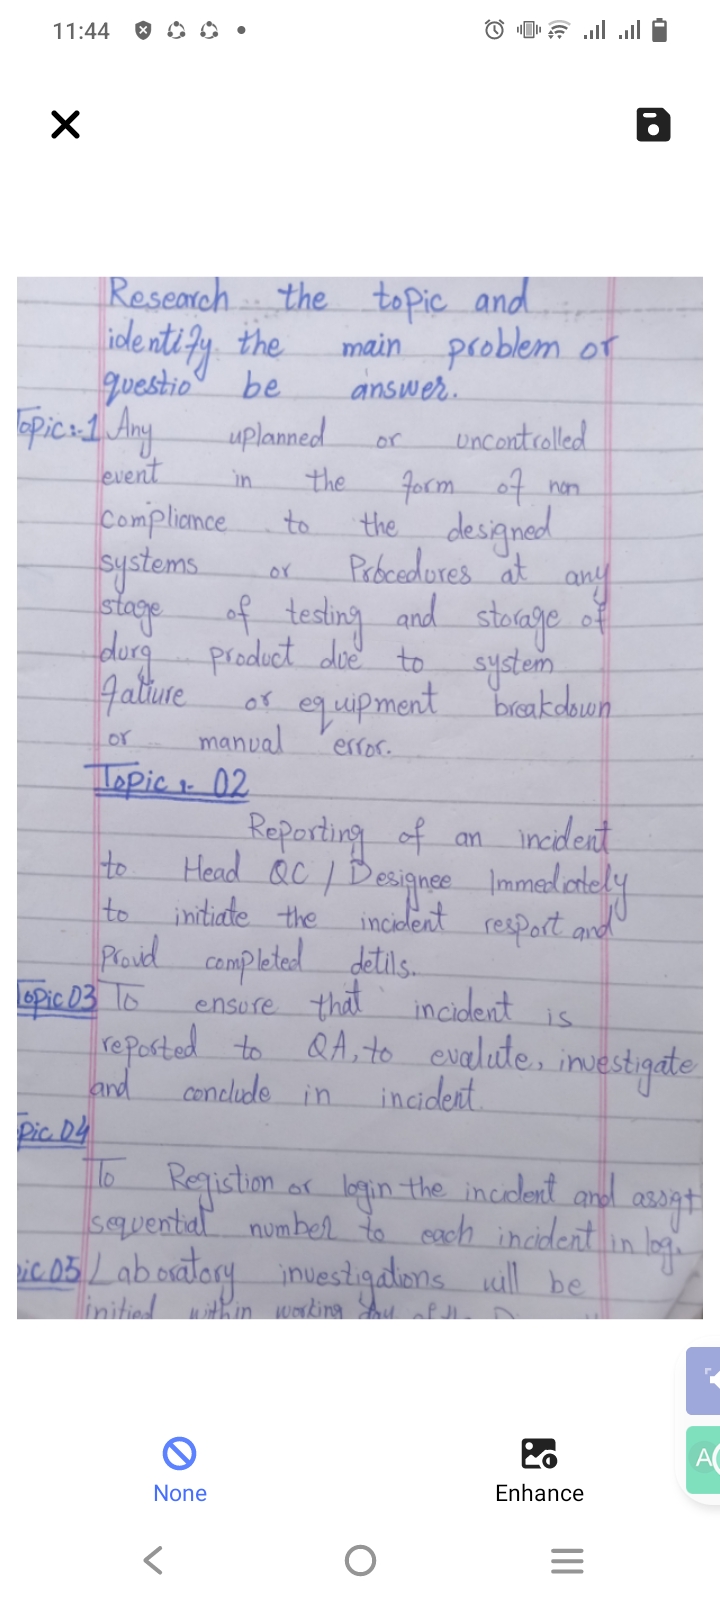 11:44
Research the topic and
identify the main problem or
questio be answer.
Topic:-1 Any uplanned or uncontrolled
event in the form of non
compliance to the designed
systems or Procedures at any
stage of testing and storage of
durg product due to system
faliure or equipment breakdown
or manual error.
Topic :- 02
Reporting of an incident
to Head QC / Designee Immediately
to initiate the incident resport and
Provid completed detils.
Topic 03 To ensure that incident is
reported to QA, to evalute, investigate
and conclude in incident.
pic 04
To Registion or login the incident and assigt
sequential number to each incident in log.
pic 05 Laboratory investigations will be
initied within working day of
None
Enhance